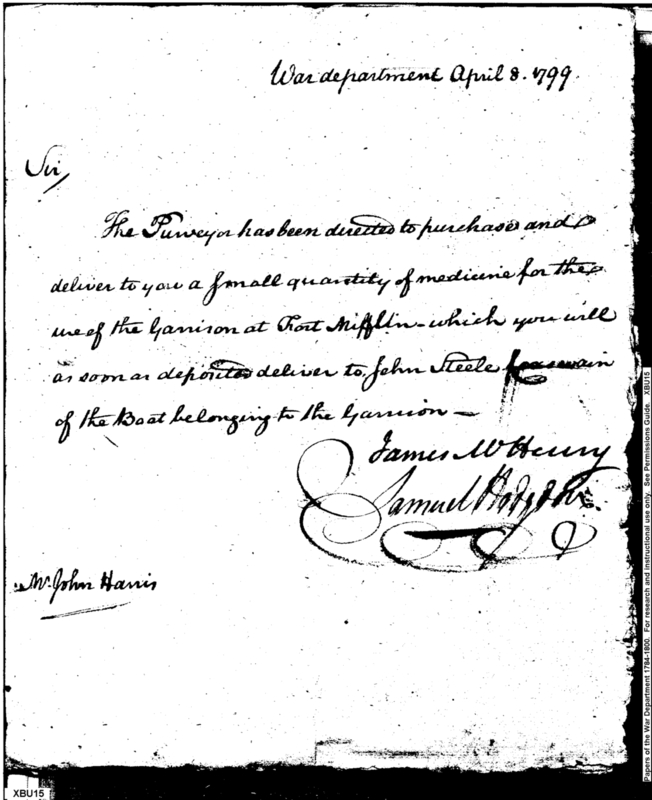 War department April 8. 1799.
Sir,
The Purveyor has been directed to purchase and
deliver to you a small quantity of medicine for the
use of the Garrison at Fort Mifflin - which you will
as soon as deposited deliver to John Steele Coxswain
of the Boat belonging to the Garrison —
James McHenry
Samuel Hodgdon.
Mr. John Harris
XBU15
Papers of the War Department 1784-1800. For research and instructional use only. See Permissions Guide. XBU15